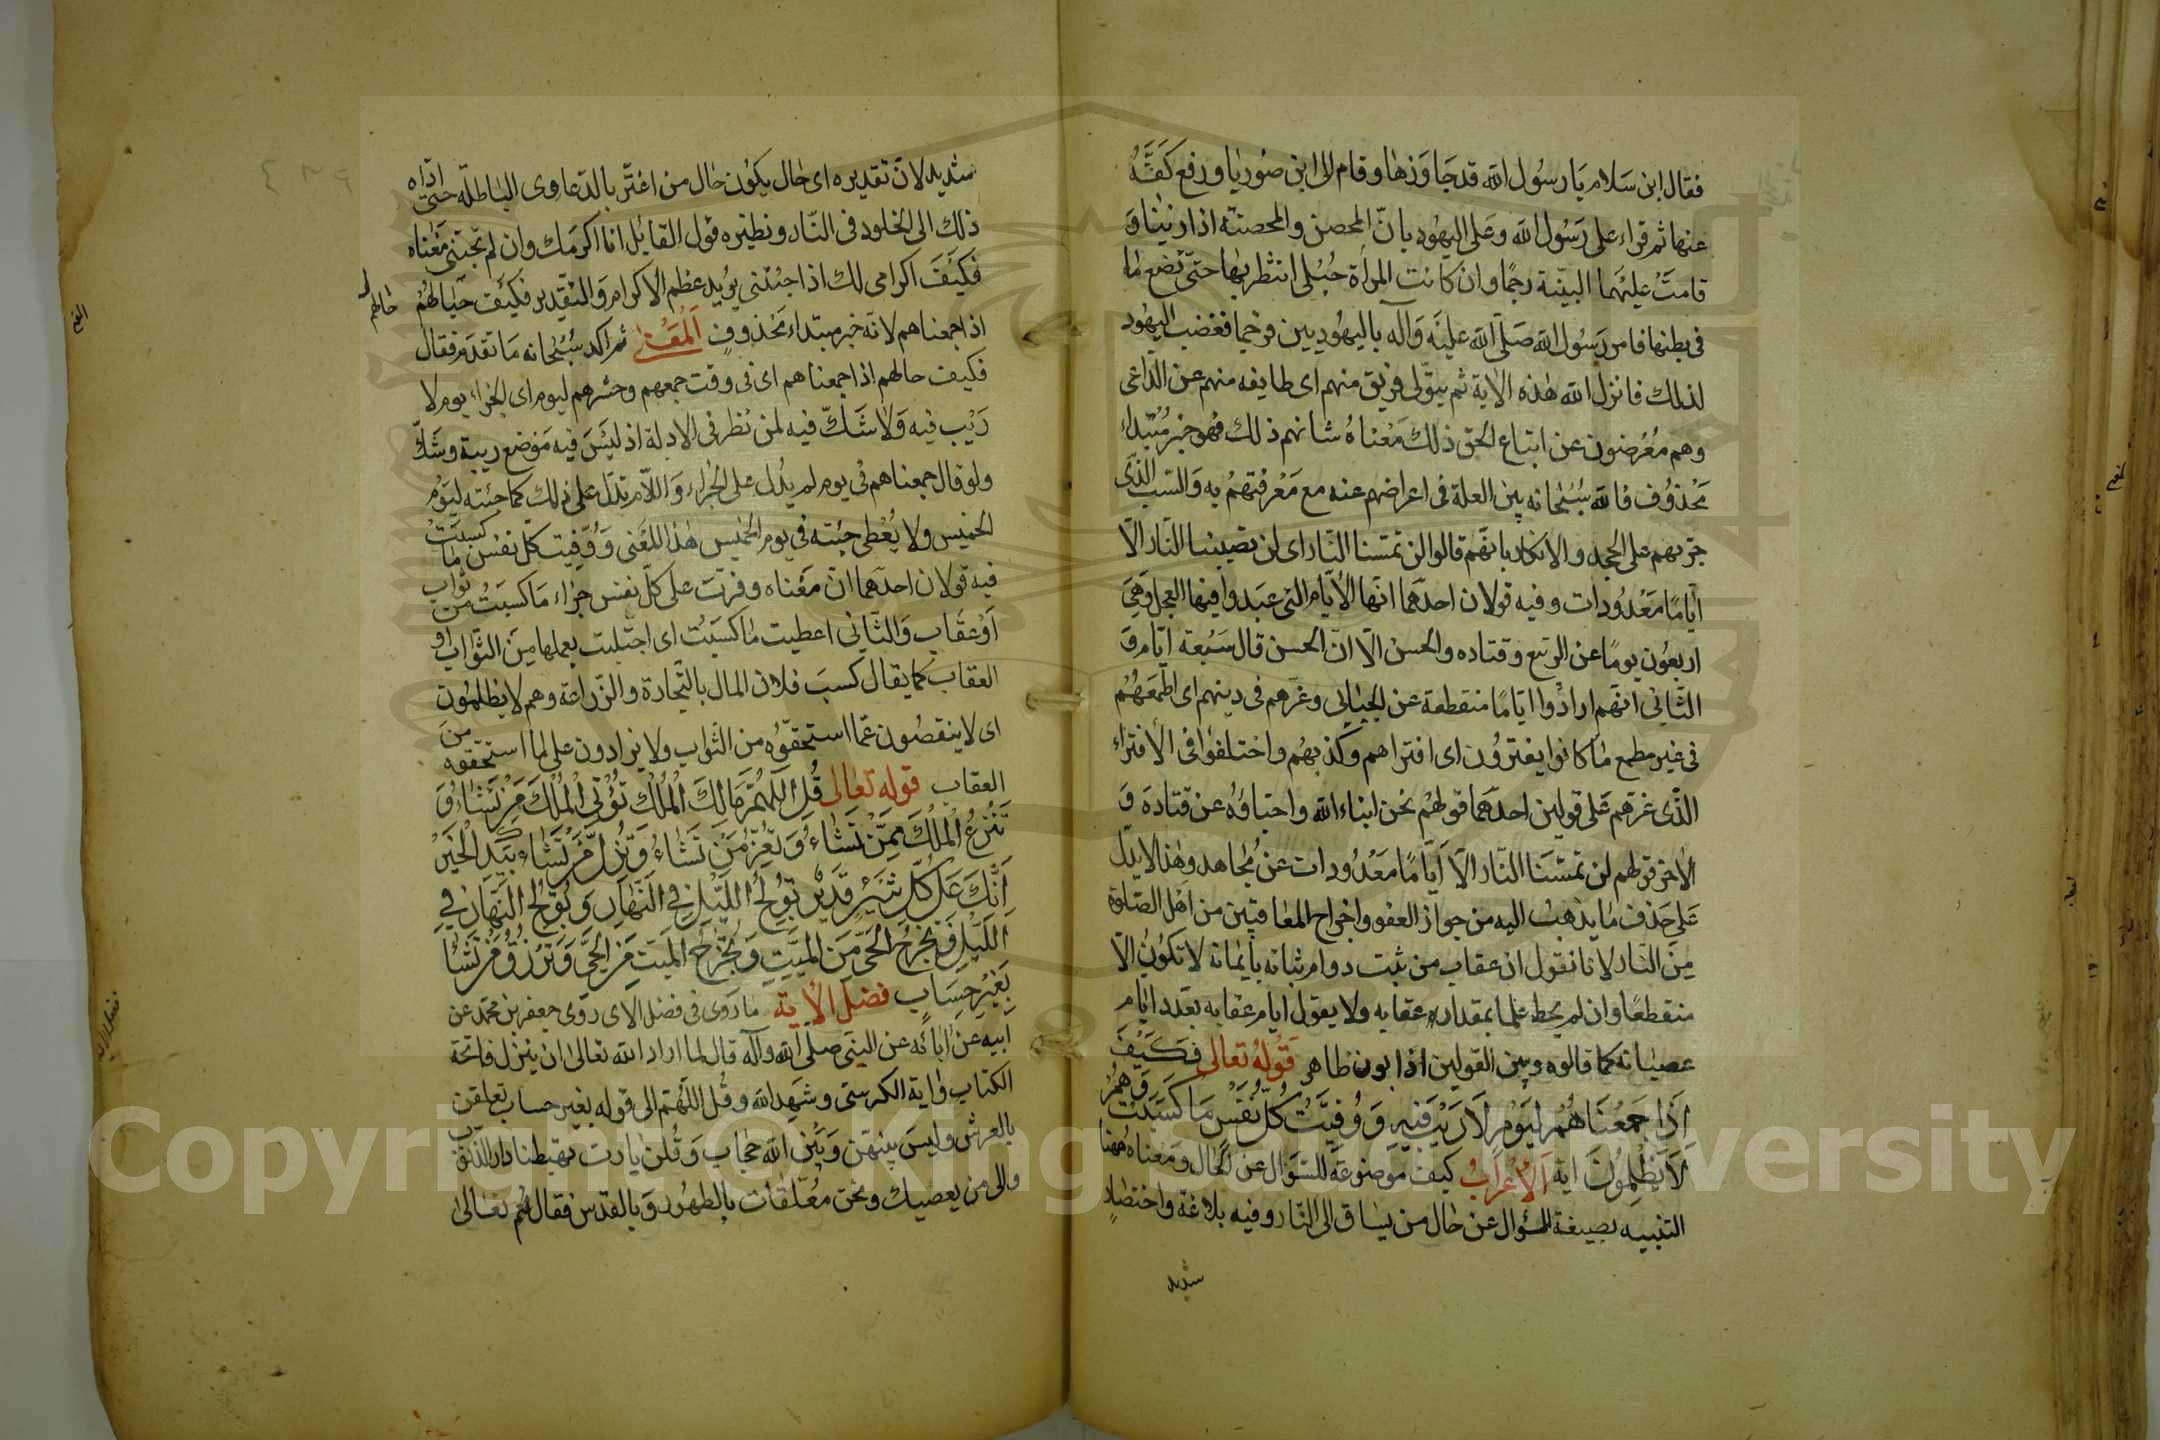 فقال ابن سلام يا رسول الله قد جاوزها وقام الى ابن صوريا ورفع كفّه
عنها ثم قراء على رسول الله وعلى اليهود بانّ المحصن والمحصنة اذا زنيا و
قامت عليهما البيّنة رجما وان كانت المرأة حبلى انتظر بها حتّى تضع ما
فى بطنها فامر رسول الله صلّى الله عليه وآله باليهوديين فرجما فغضب اليهود
لذلك فانزل الله هذه الاية ثم يتولى فريق منهم اى طايفه منهم عن الداعى
وهم معرضون عن اتباع الحق ذلك معناه شانهم ذلك فهو خبر مبتداء
محذوف فالله سبحانه بين العلة فى اعراضهم عنه مع معرفتهم به والسّبب الذى
جرّيهم على الجحد والانكار بانّهم قالوا لن تمسّنا النّار اى لن تصيبنا النّار الّا
أيّاما معدودات وفيه قولان احدهما انّها الأيّام التى عبدوا فيها العجل وهى
اربعون يوما عن الربيع وقتاده والحسن الّا انّ الحسن قال سبعة ايّام و
الثّانى انّهم ارادوا ايّاما منقطعة عن الجبايى وغرّهم فى دينهم اى اطمعهم
فى غير مطمع ما كانوا يفترون اى افتراهم وكذبهم واختلفوا فى الافتراء
الذّى غرّهم على قولين احدهما قولهم نحن ابناء الله واحباؤه عن قتادة و
الاخر قولهم لن تمسّنا النّار الّا أيّاما معدودات عن مجاهد وهذا لا يدلّ
على حذف ما يذهب اليه من جواز العفو واخراج المعاقبين من اهل الصّلوة
من النّار لانّا نقول ان عقاب من ثبت دوام ثباته بايمانه لا تكون الّا
منقطعا وان لم يحط علما بمقداره عقابه ولا يقول ايام عقابه بعدد ايّام
عصيانه كما قالوه وبين القولين اذا بون ظاهر قوله تعالى فكيف
اذا جمعناهم ليوم لا ريب فيه ووفّيت كلّ نفس ما كسبت وهم
لا يظلمون اية الاعراب كيف موضوعة للسّوال عن الحال ومعناه ههنا
التنبيه بصيغة السّؤال عن حال من يساق الى النّار وفيه بلاغة واختصار
شديد
شديد لانّ تقديره اى حال يكون حال من اغترّ بالدّعاوى الباطلة حتّى ادّاه
ذلك الى الخلود فى النّار ونظيره قول القايل انا اكرمك وان لم تجئنى معناه
فكيف اكرامى لك اذا جئتنى يريد عظم الاكرام والتّقدير فكيف حالهم
حالهم
اذا جمعناهم لانّه خبر مبتداء محذوف المعنى ثم اكد سبحانه ما تقدم فقال
فكيف حالهم اذا جمعناهم اى فى وقت جمعهم وحشرهم ليوم اى لجزاء يوم لا
ريب فيه ولا شكّ فيه لمن نظر فى الادلة اذ ليس فيه موضع ريبة وشكّ
ولو قال جمعناهم فى يوم لم يدل على الجزاء واللّام تدلّ على ذلك كما جئته ليوم
الخميس ولا يعطى جئته فى يوم الخميس هذا المعنى ووفّيت كلّ نفس ما كسبت
فيه قولان احدهما انّ معناه وفرّت على كلّ نفس جزاء ما كسبت من ثواب
او عقاب والثّانى اعطيت ما كسبت اى اجتلبت بعملها من الثّواب او
العقاب كما يقال كسب فلان المال بالتّجارة والزّراعة وهم لا يظلمون
اى لا ينقصون عمّا استحقّوه من الثّواب ولا يزادون على ما استحقّوه من
العقاب قوله تعالى قل اللّهمّ مالك الملك تؤتى الملك من تشاء و
تنزع الملك ممّن تشاء وتعزّ من تشاء وتذلّ من تشاء بيدك الخير
انّك على كلّ شىء قدير تولج اللّيل فى النّهار وتولج النّهار فى
اللّيل وتخرج الحىّ من الميّت وتخرج الميّت من الحىّ وترزق من تشاء
بغير حساب فضل الاية ما روى فى فضل الاى روى جعفر بن محمد عن
ابيه عن ابائه عن النبى صلى الله وآله قال لما اراد الله تعالى ان ينزل فاتحة
الكتاب واية الكرسى وشهد الله وقل اللّهمّ الى قوله بغير حساب تعلقن
بالعرش وليس بينهنّ وبين الله حجاب وقلن يا ربّ تهبطنا دار الذّنوب
والى من يعصيك ونحن معلّقات بالطهور وبالقدس فقال لهم تعالى